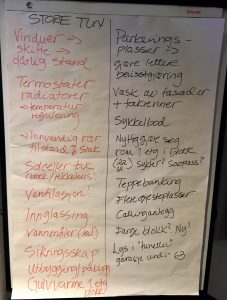 STORE TUV
Vinduer →
skifte →
dårlig stand
Termostater
radiatorer
→ temperatur
regulering
→ Innvendig rør
tilstand & sluk
Solceller tak
Ventilasjon!
Innglassing
vannmåler
Sikringsskap
Utbygging/påbygg
Gulvvarme 1 etg
Parkerings-
plasser →
gjøre lettere
beisstgjøring
Vask av fasader
+ takrenner
Sykkelbod
Nyttiggjøre seg
rom 1 etg i Blokk
sykler?
Teppebanking
Flere gjesteplasser
Callinganlegg
Farge blokk? Ny!
Lys i "tunellen"
garasje under